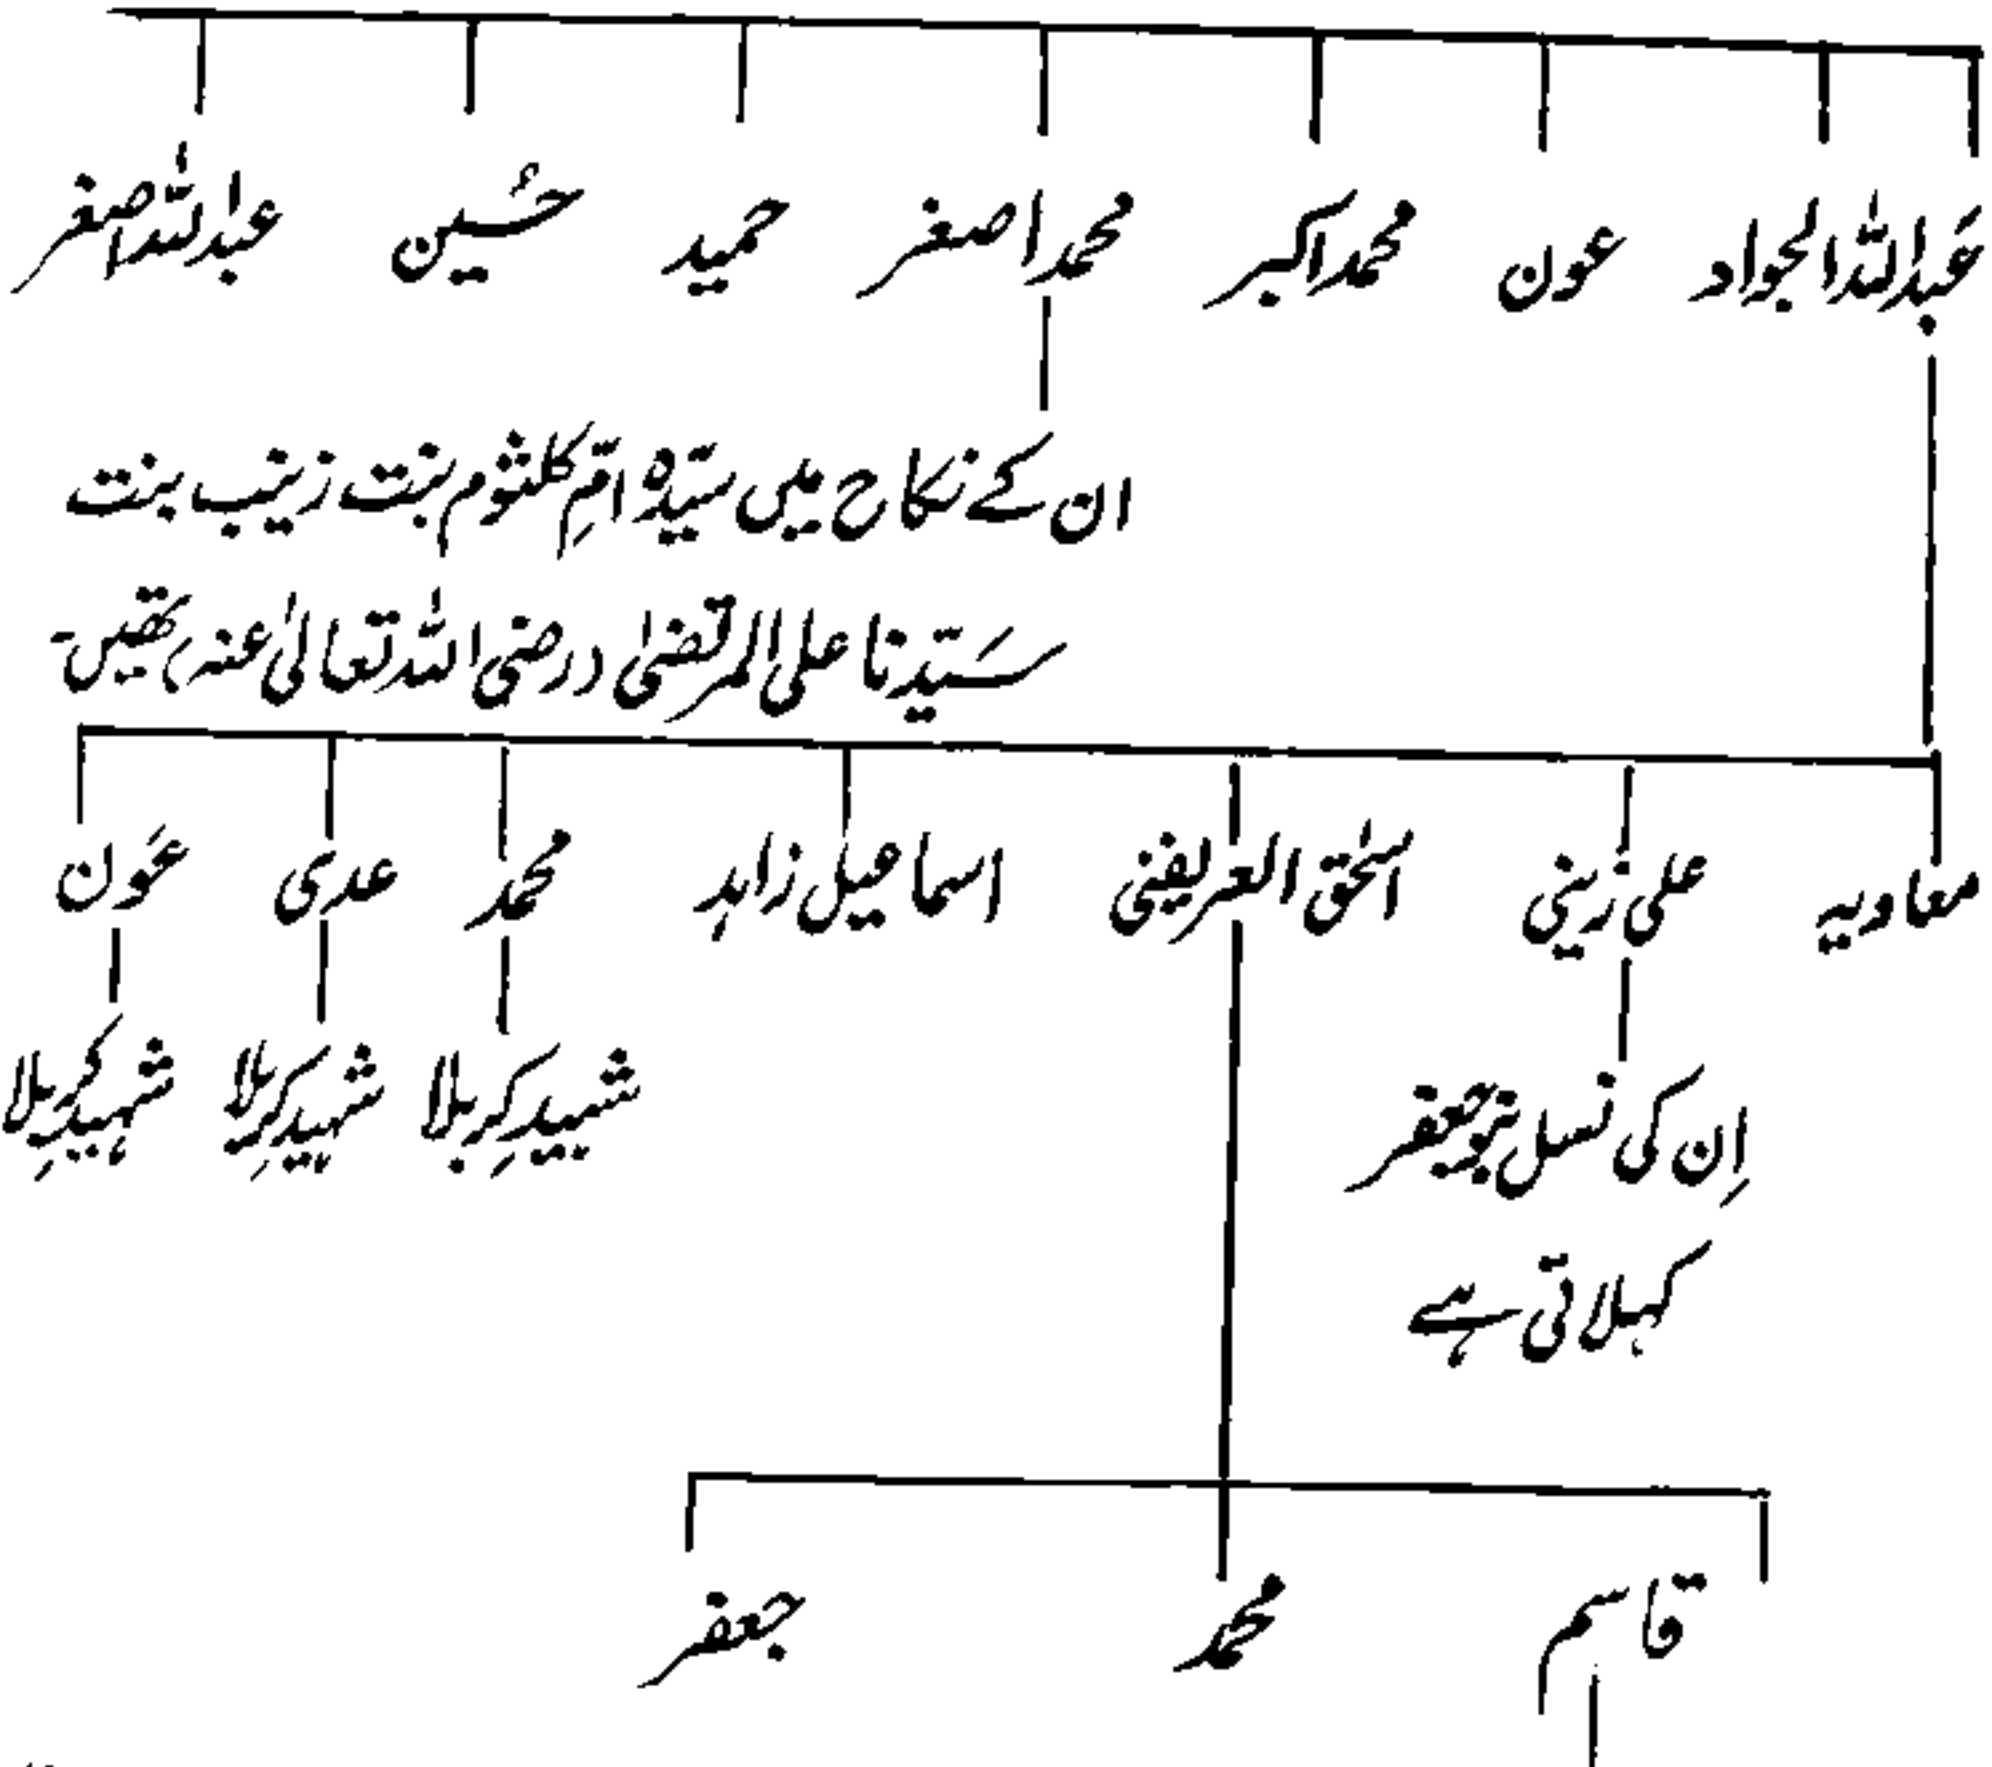 عبداللہ الجواد عون محمد اکبر محمد اصغر حمید حسُین عبداللہ اصغر
ان کے نکاح میں سیّدہ امِّ کلثوم بنت زینب بنت
سَیّدنا علی المرتضیٰ (رضی اللہ تعالیٰ عنہ) تھیں۔
معاویہ علی زینی اسحٰق العریضی اسماعیل زاہد محمد عدی عَون
شہیدِ کربلا شہیدِ کربلا شہیدِ کربلا
اِن کی نسل بنو جعفر
کہلاتی ہے
قاسم محمد جعفر